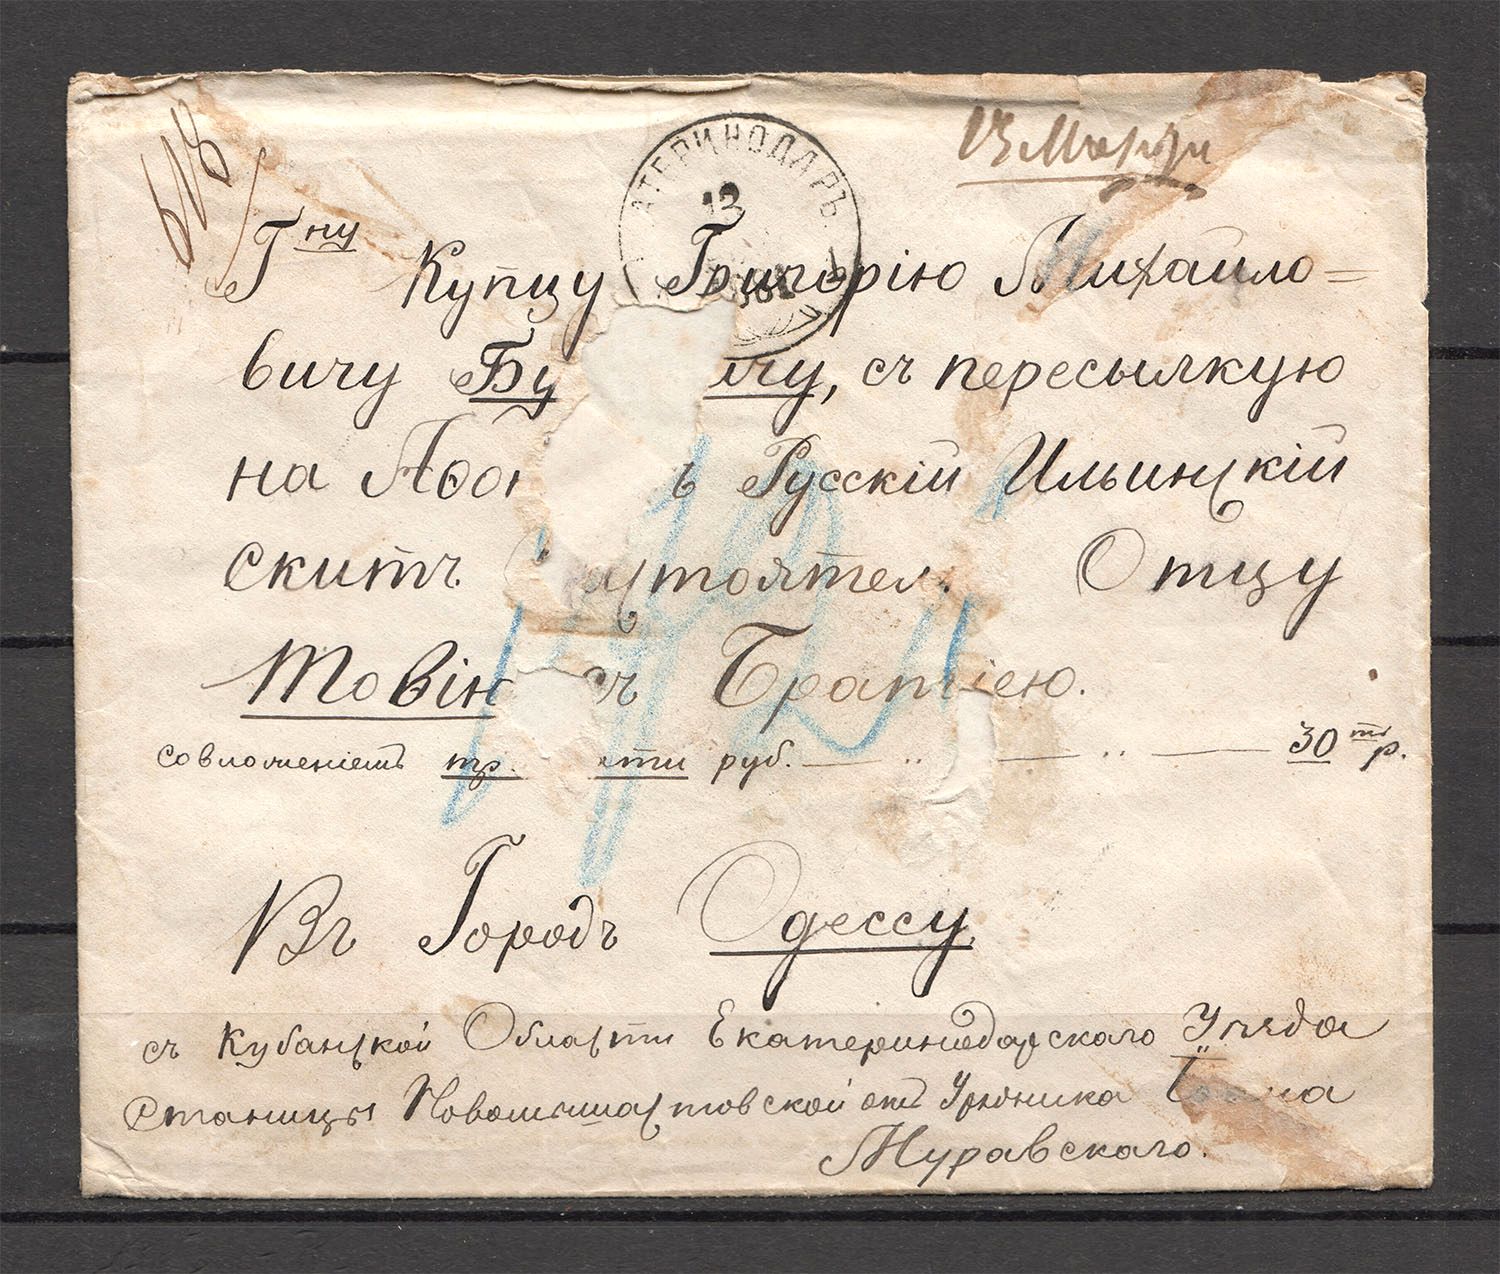 618
13 Марта
ЕКАТЕРИНОДАРЪ
13
Гну Купцу Григорію Михайло=
вичу Бу ичу, съ пересылкую
на Афон ъ Русскій Ильинскій
скитъ астоятел Отцу
Товін съ Братіею.
совложеніемъ тр. ати руб. — .. — .. — 30 тр.
Въ Городъ Одессу
съ Кубанской Области Екатеринодарскаго Уѣзда
Станицы Новомышастовской отъ Урядника
Муравскаго.